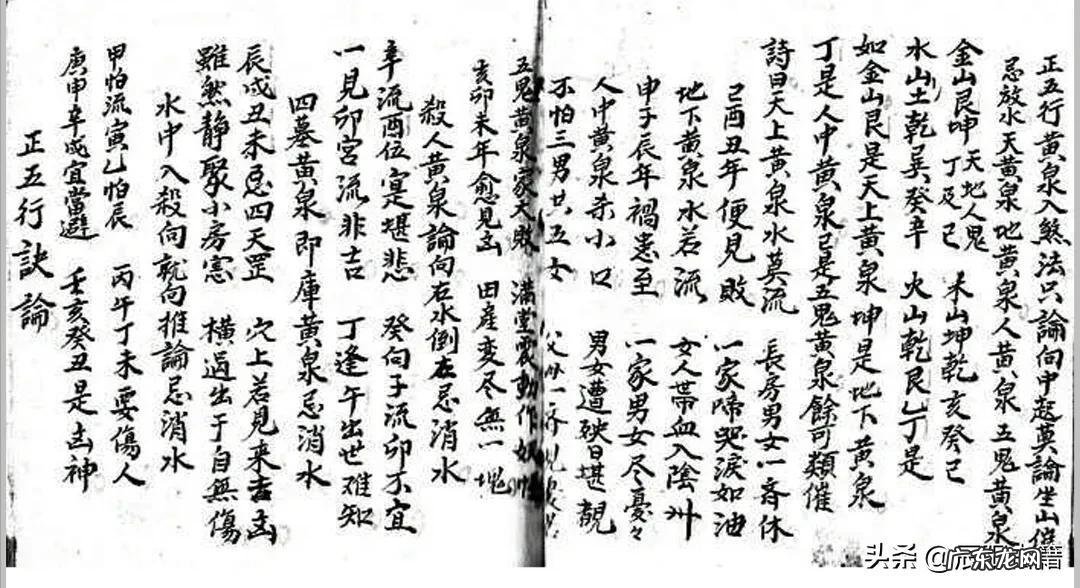 正五行黃泉入煞法只論向中起莫論坐山催
忌放水天黃泉地黃泉人黃泉五鬼黃泉
金山艮坤天地人鬼丁及己 木山坤乾亥癸己
水山土乾巽癸辛 火山乾艮丁是
如金山艮是天上黃泉坤是地下黃泉
丁是人中黃泉己是五鬼黃泉餘可類催
詩曰天上黃泉水莫流 長房男女一齊休
己酉丑年便見敗 一家啼哭淚如油
地下黃泉水若流 女人帶血入陰州
申子辰年禍患至 一家男女盡憂々
人中黃泉杀小口 男女遭殃日堪覩
不怕三男廿五女
五鬼黃泉家大敗 滿堂震動作妖
亥卯未年愈見凶 田産変尽無一塊
殺人黃泉論向右水倒左忌消水
辛流酉位寔堪悲 癸向子流卯不宜
一見卯宮流非吉 丁逢午出世难知
四墓黃泉即庫黃泉忌消水
辰戌丑未忌四天罡 穴上若見来去凶
雖然静聚小房憲 橫過出于自無傷
水中入殺向就向推論忌消水
甲怕流寅乙怕辰 丙午丁未要傷人
庚申辛戌宜當避 壬亥癸丑是凶神
正五行訣論
头条 @广东龙网籍